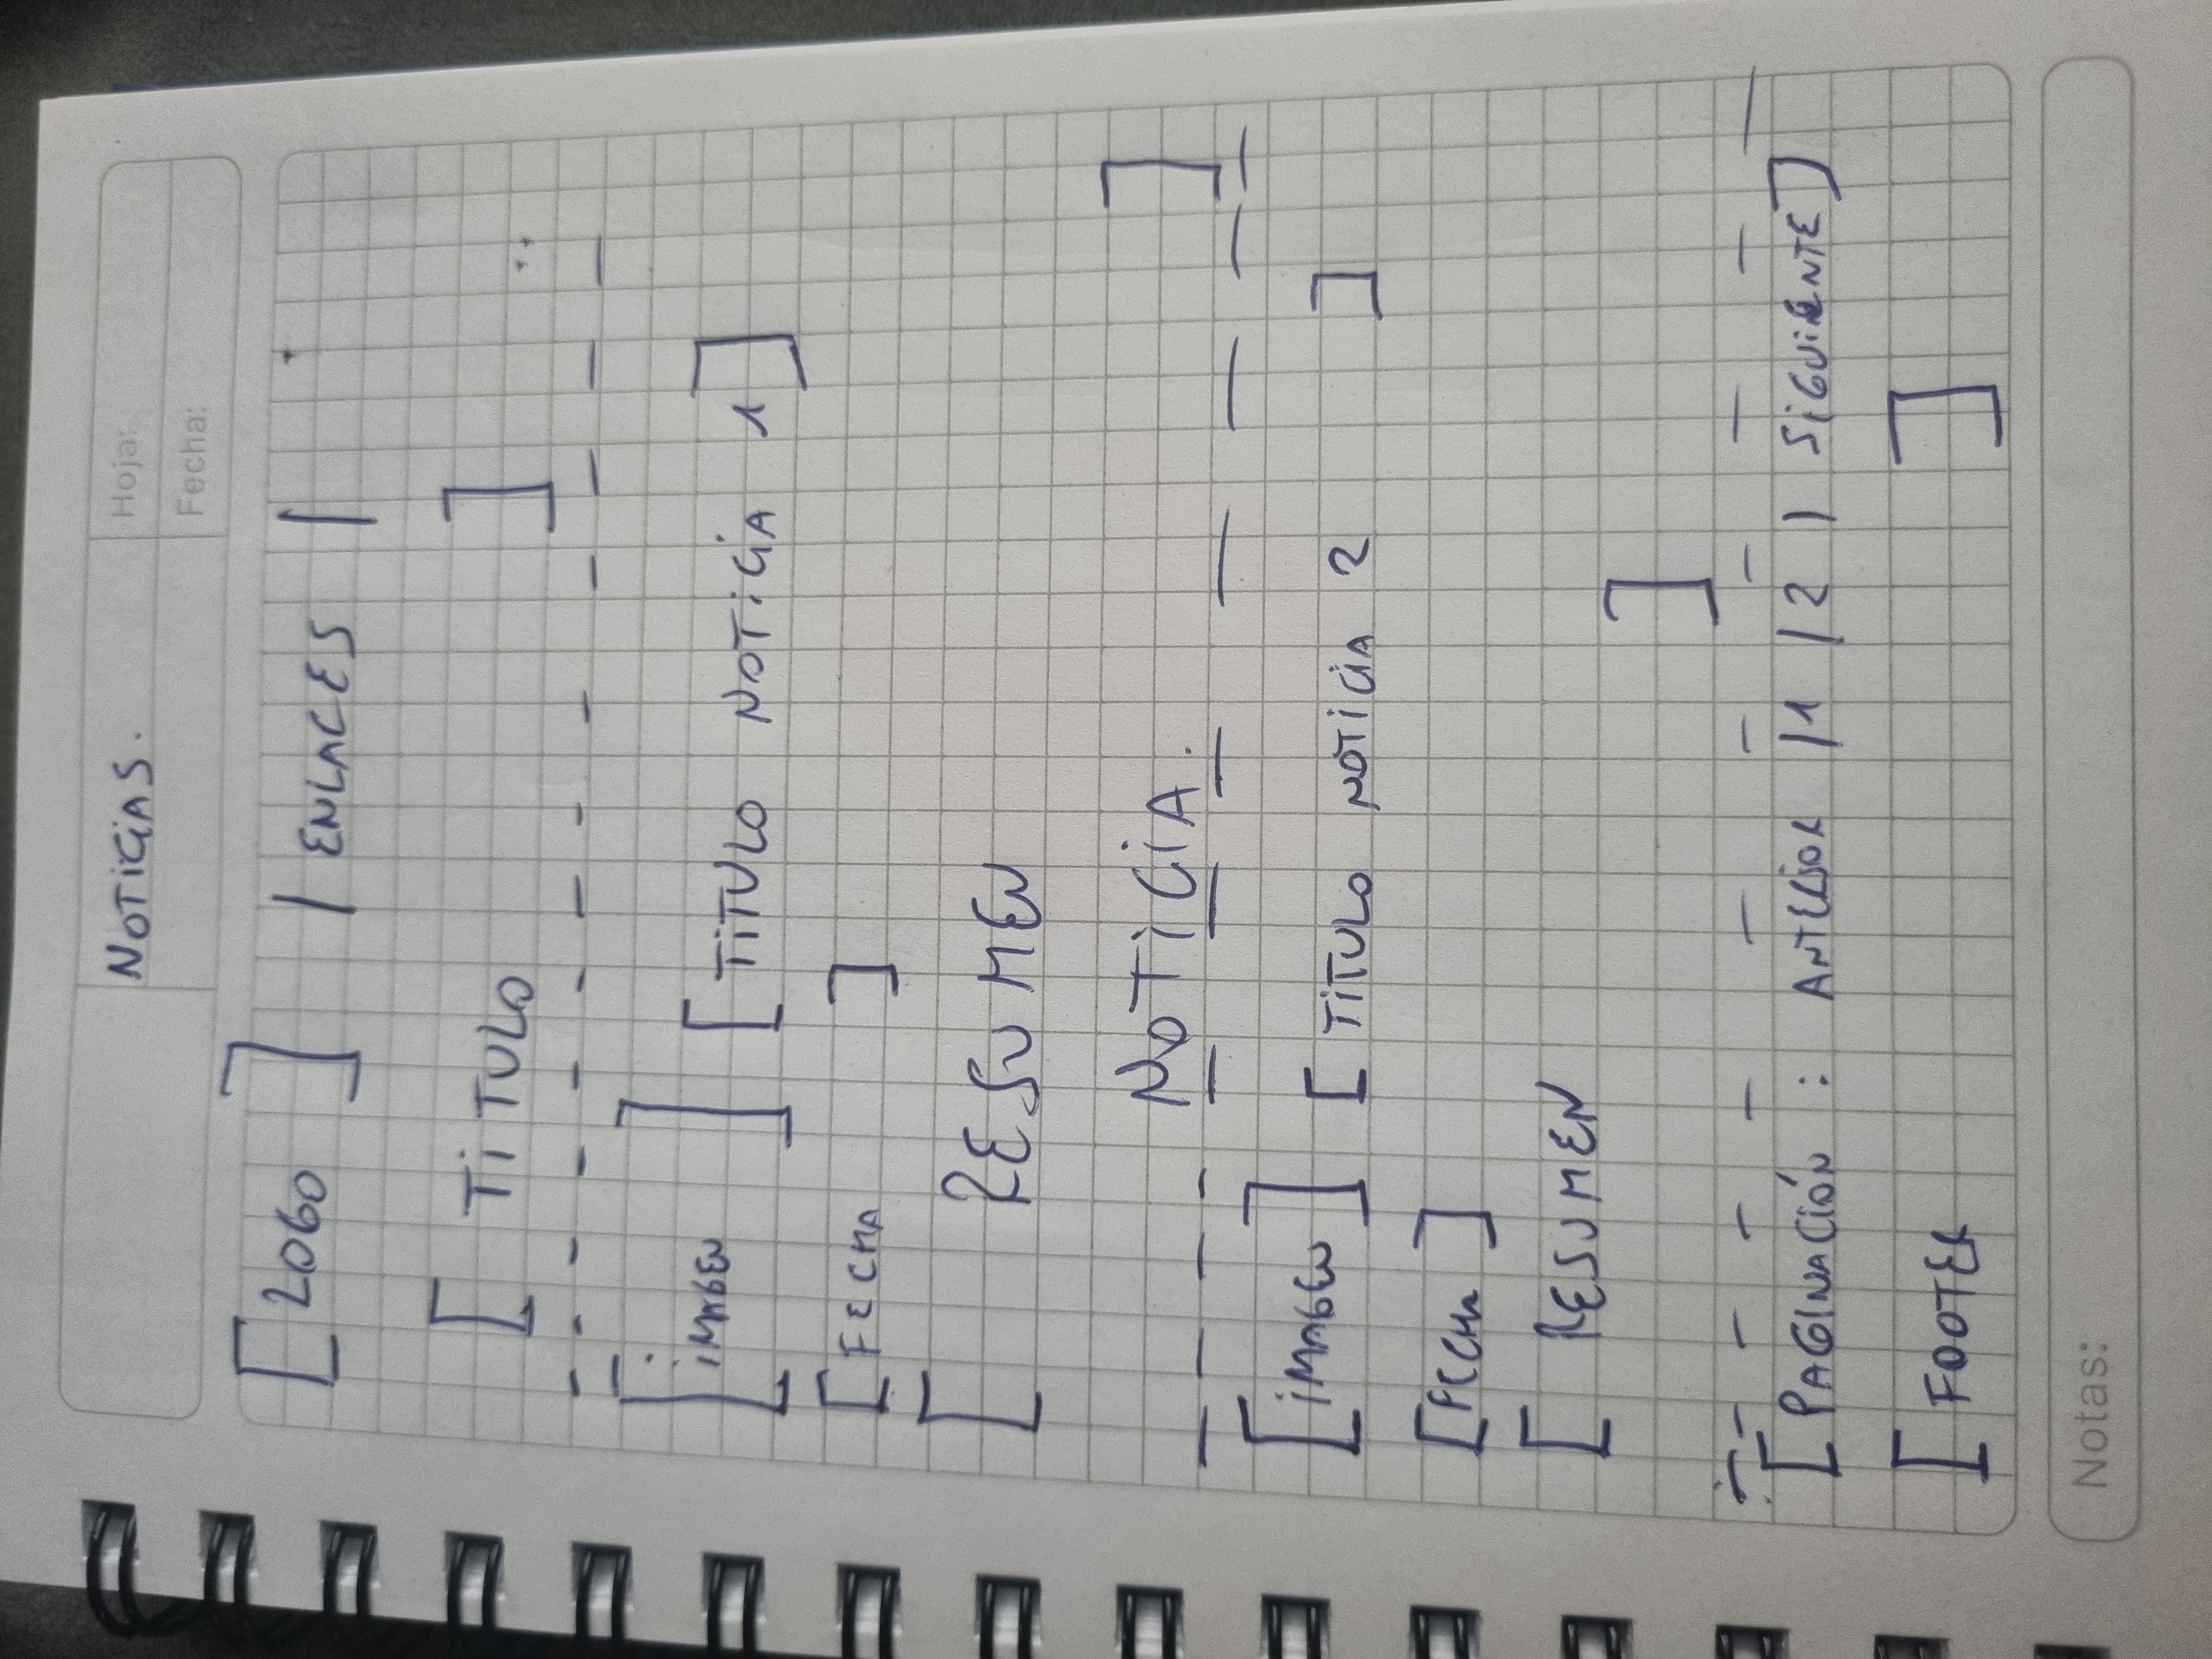 NOTICIAS.
Hoja:
Fecha:
[LOGO] | ENLACES |
[TiTULO]
[iMAGEN] [TiTULO NOTiCiA 1]
[FECHA]
[RESUMEN
NOTiCiA.]
[iMAGEN] [TiTULO NOTiCiA 2]
[FECHA]
[RESUMEN]
[PAGINACIÓN : ANTERIOR |1 |2 | SiGUiENTE]
[FOOTER]
Notas: